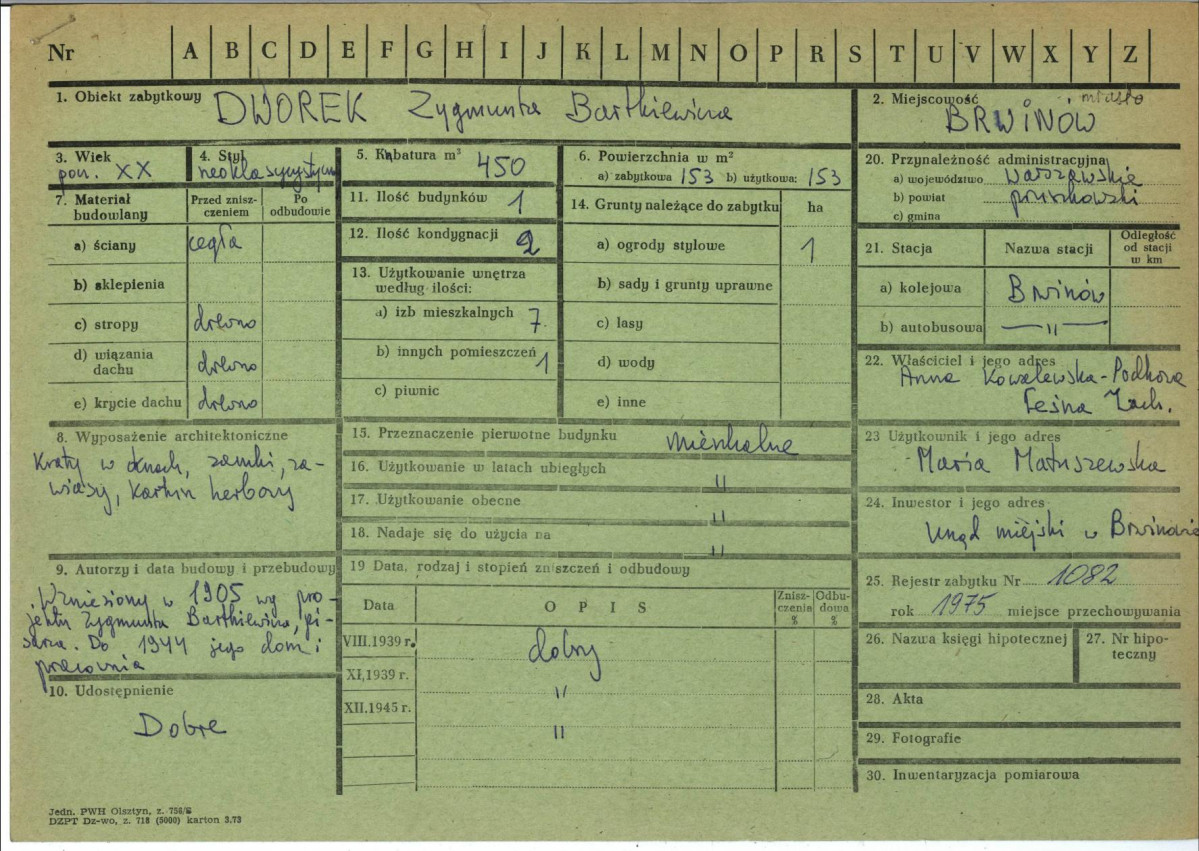 Nr A B C D E F G H I J K L M N O P R S T U V W X Y Z
1. Obiekt zabytkowy DWOREK Zygmunta Bartkiewicza
2. Miejscowość miasto
BRWINÓW
3. Wiek
poN. XX
4. Styl
neoklasycystyczn
5. Kubatura m³ 450
6. Powierzchnia w m²
a) zabytkowa 153 b) użytkowa: 153
7. Materiał budowlany
Przed zniszczeniem
Po odbudowie
a) ściany cegła
b) sklepienia
c) stropy drewno
d) wiązania dachu drewno
e) krycie dachu drewno
8. Wyposażenie architektoniczne
Kraty w oknach, zamki, za-
wiasy, kartusz herbowy
9. Autorzy i data budowy i przebudowy
Wzniesiony w 1905 wg pro-
jektu Zygmunta Bartkiewicza, pi-
sarza. Do 1944 jego dom i
pracownia
10. Udostępnienie
Dobre
11. Ilość budynków 1
12. Ilość kondygnacji 2
13. Użytkowanie wnętrza
według ilości:
a) izb mieszkalnych 7
b) innych pomieszczeń 1
c) piwnic
14. Grunty należące do zabytku ha
a) ogrody stylowe 1
b) sady i grunty uprawne
c) lasy
d) wody
e) inne
15. Przeznaczenie pierwotne budynku mieszkalne
16. Użytkowanie w latach ubiegłych "
17. Użytkowanie obecne "
18. Nadaje się do użycia na "
19 Data, rodzaj i stopień zniszczeń i odbudowy
Data OPIS Zniszczenia % Odbudowa %
VIII.1939 r. dobry
XI,1939 r. "
XII.1945 r. "
20. Przynależność administracyjna
a) województwo warszawskie
b) powiat pruszkowski
c) gmina
21. Stacja Nazwa stacji Odległość od stacji w km
a) kolejowa Brwinów
b) autobusowa — " —
22. Właściciel i jego adres
Anna Kowalewska-Podkowa
Leśna Zach.
23 Użytkownik i jego adres
Maria Matuszewska
24. Inwestor i jego adres
Urząd miejski w Brwinowie
25. Rejestr zabytku Nr 1082
rok 1975 miejsce przechowywania
26. Nazwa księgi hipotecznej
27. Nr hipoteczny
28. Akta
29. Fotografie
30. Inwentaryzacja pomiarowa
Jedn. PWH Olsztyn, z. 756/S
DZPT Dz-wo, z. 718 (5000) karton 3.73